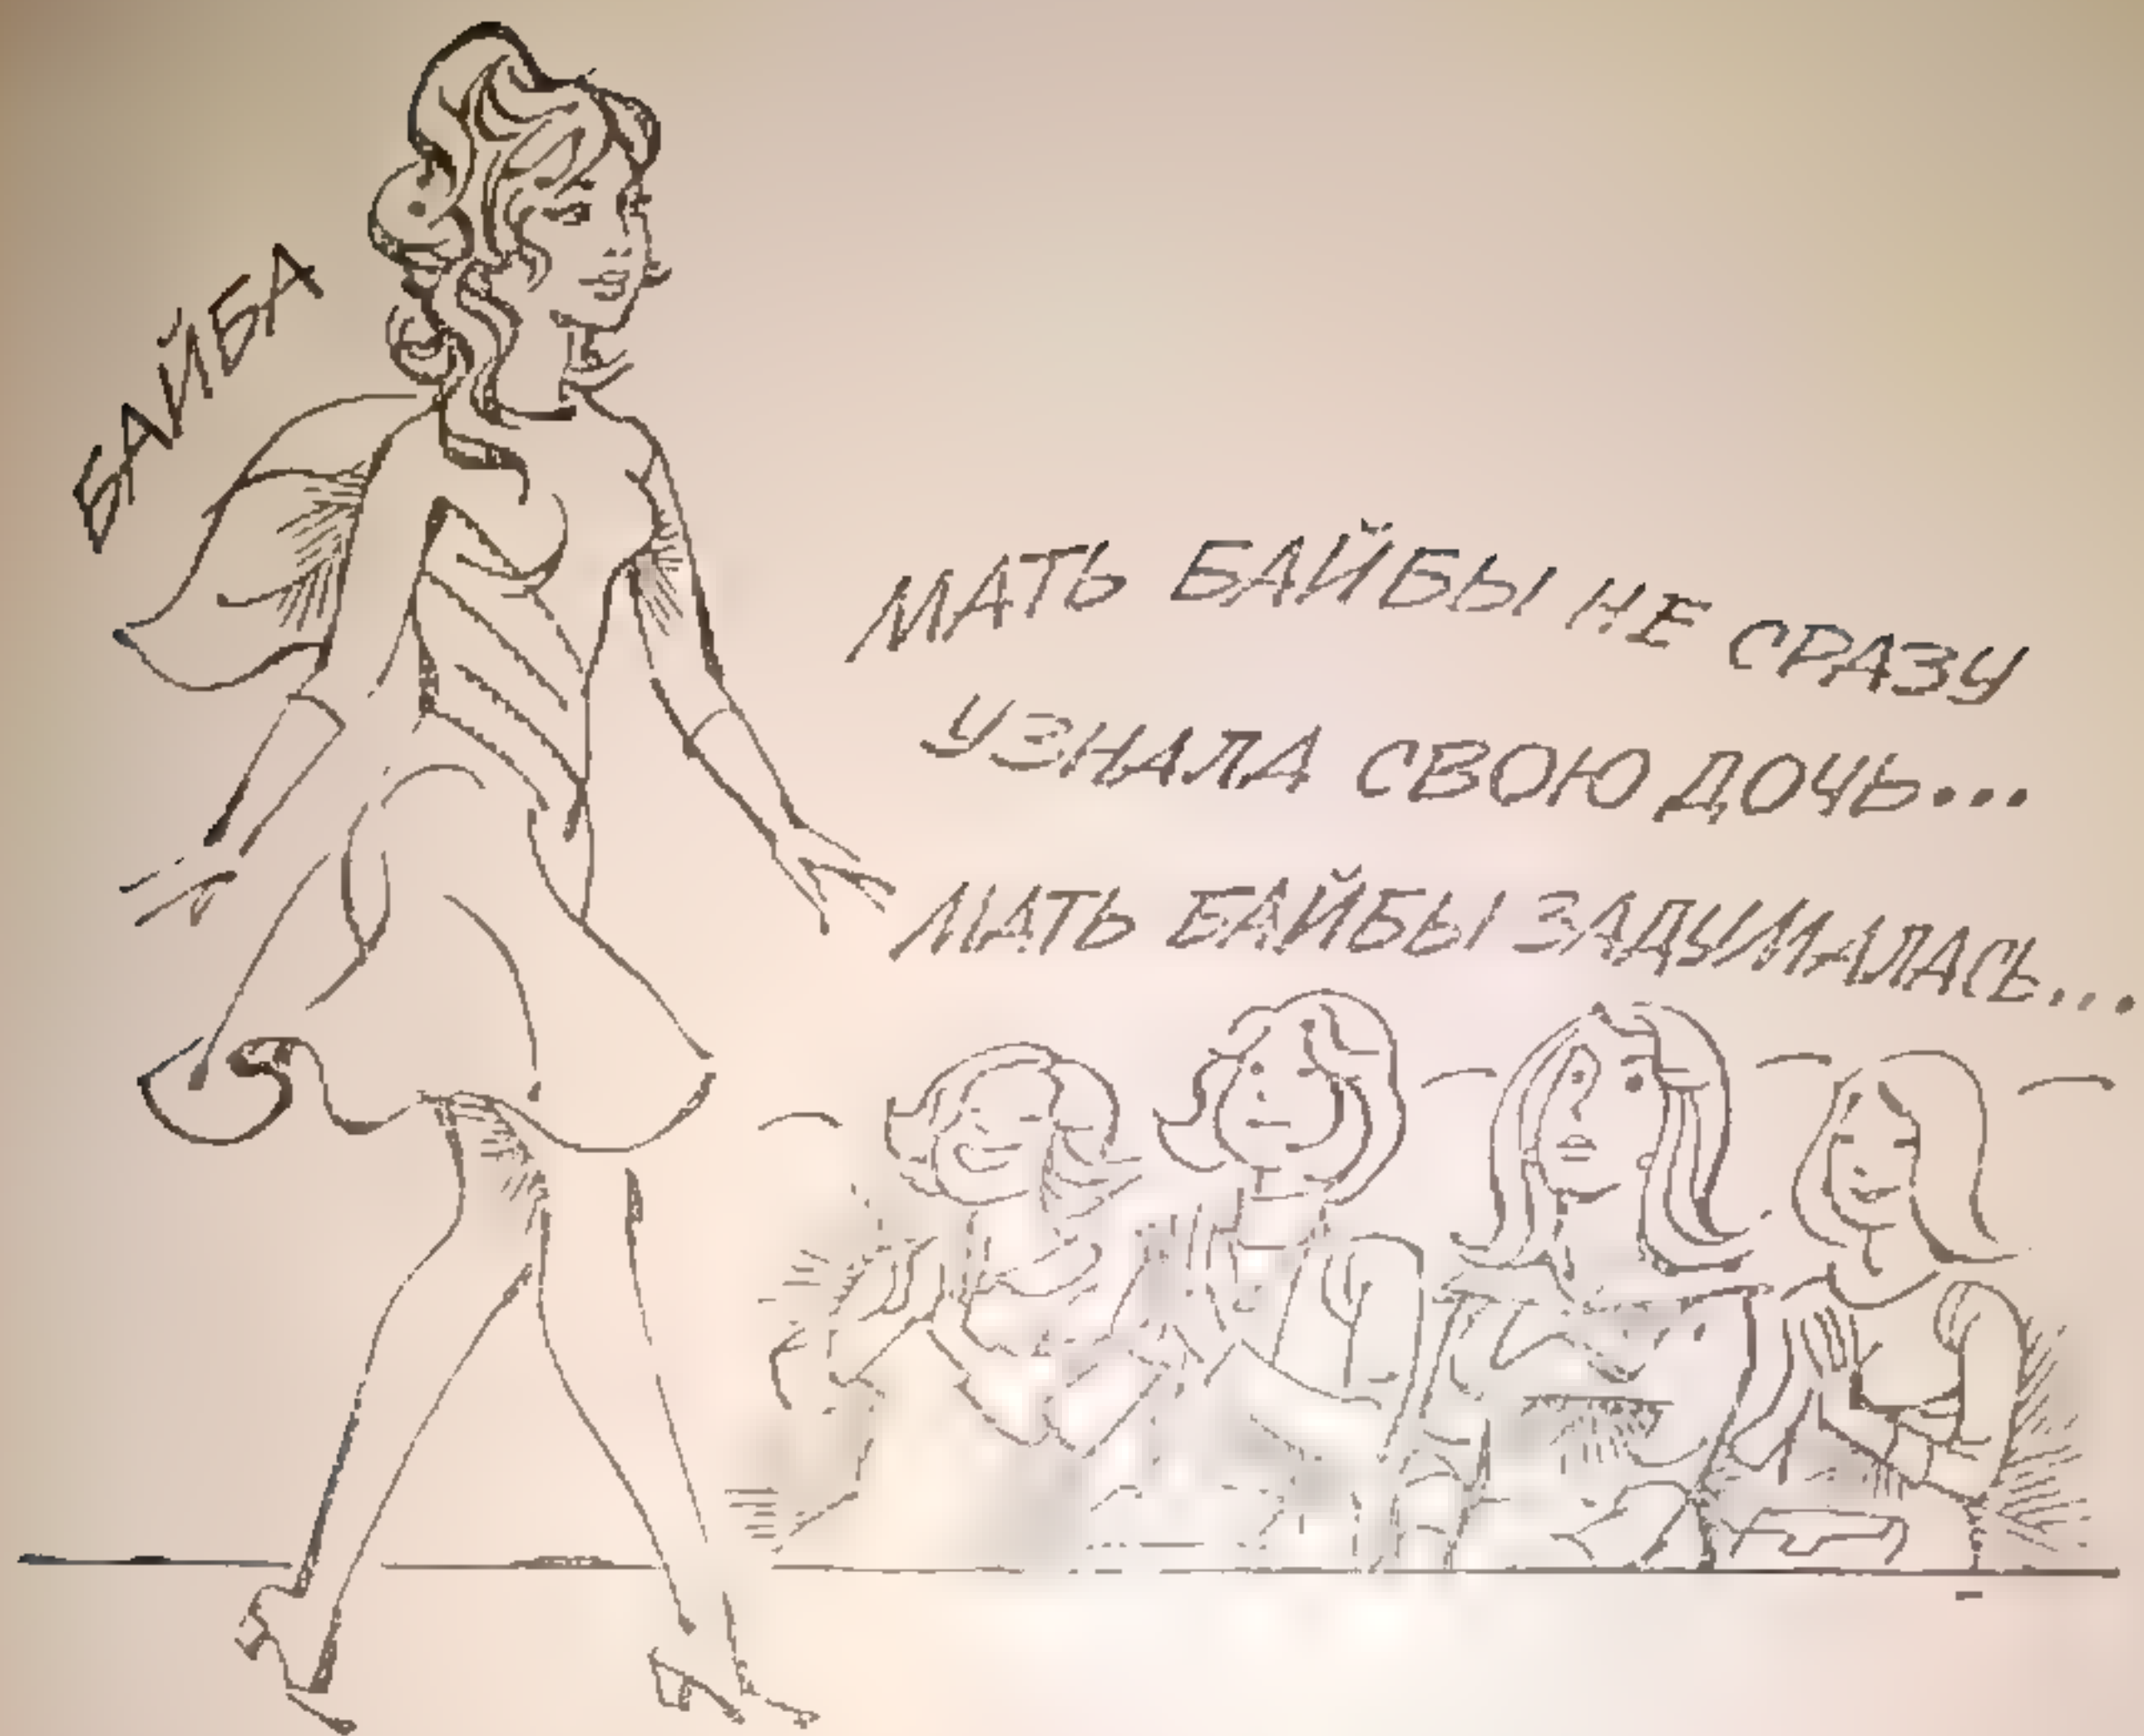 БАЙБА
МАТЬ БАЙБЫ НЕ СРАЗУ
УЗНАЛА СВОЮ ДОЧЬ...
МАТЬ БАЙБЫ ЗАДУМАЛАСЬ...